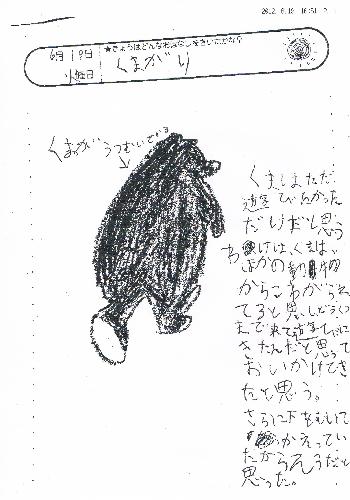 6月19日
火曜日
★きょうはどんなおはなしをきいたかな？
くまがり
くまがうつむいてかえる
くまはただ
遊びたかった
だけだと思う
わけは、くまは、
ほかの動物
からこわがられ
てると思ったし、どうくつ
まで来て遊びに
きたんだと思って
おいかけてき
たと思う。
さらに下をむいて
かえってい
たからそうだと
思った。